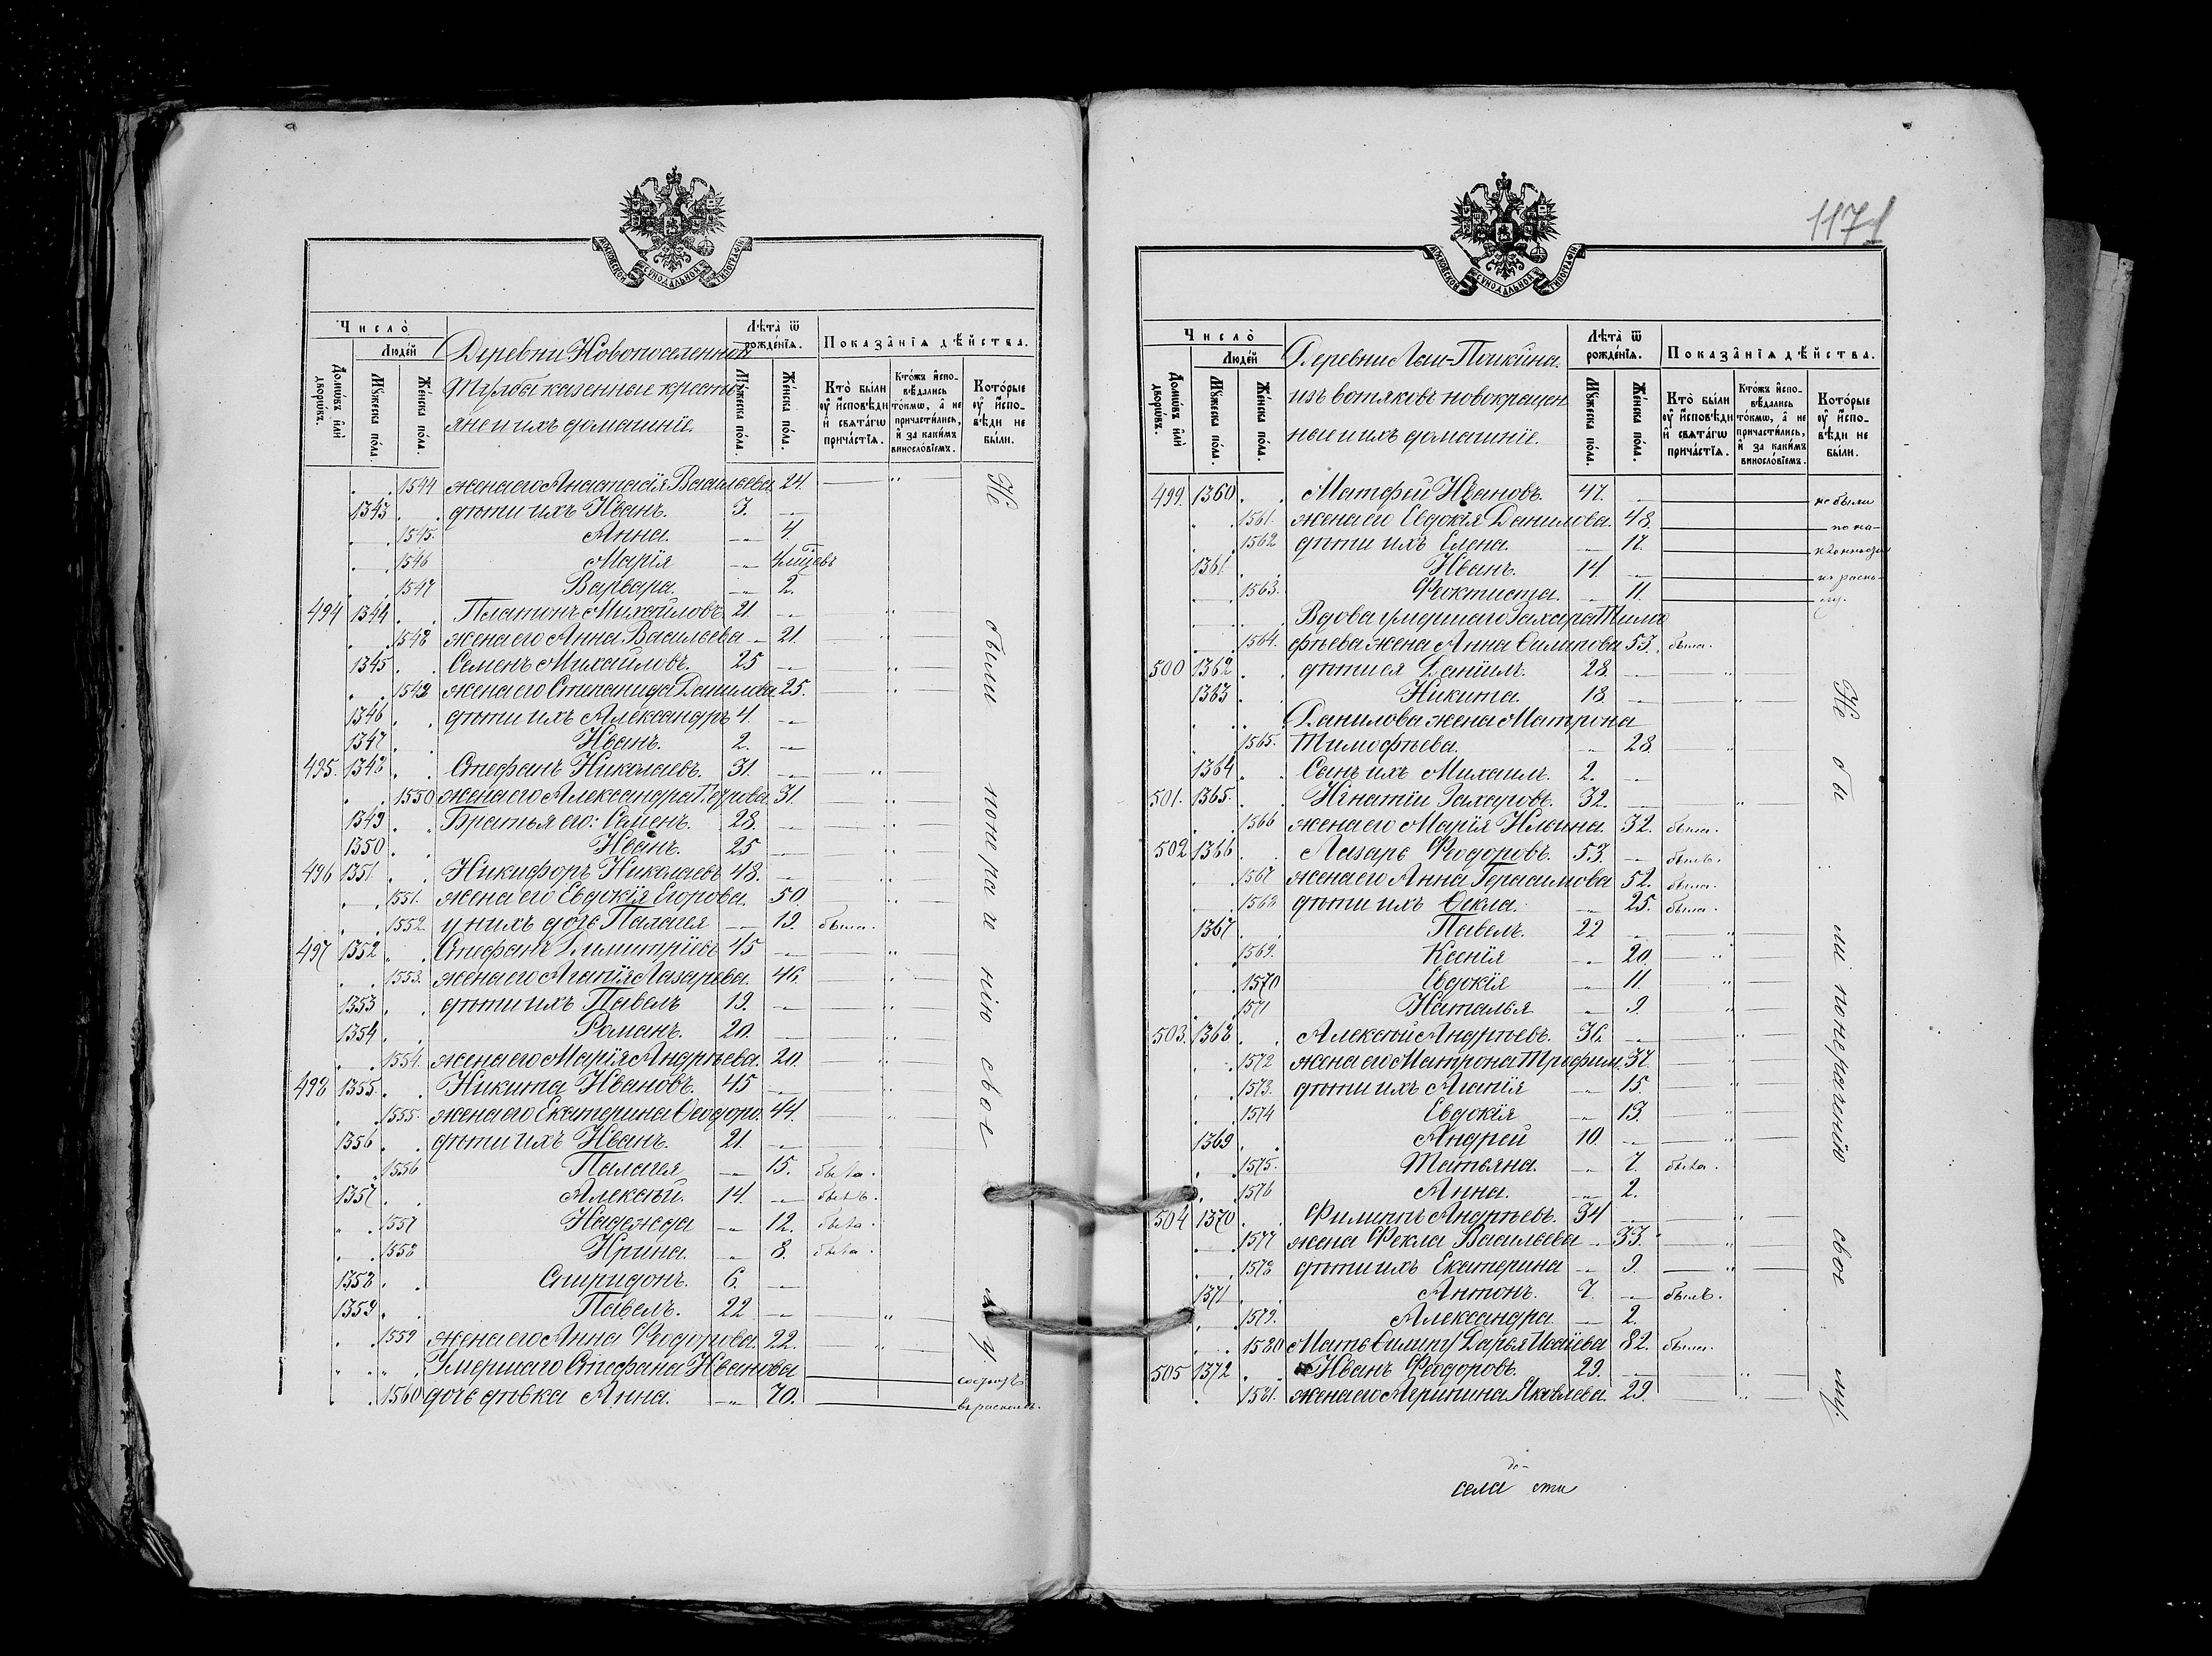 МОСКОВСКОЙ СѴНОДАЛЬНОЙ ТИПОГРАФІИ
Число̀
Люде́й
Домѡ́въ и҆лѝ дворѡ́въ.
Мꙋ́жеска по́ла.
Же́нска по́ла.
Деревни Новопоселенной
казенные кресть-
яне и ихъ домашніе.
Лѣта̀ ѿ рожде́нїѧ.
Мꙋ́жеска по́ла.
Же́нска по́ла.
Показа́нїѧ дѣ́йства.
Кто̀ бы́ли ᲂу҆ и҆сповѣ́ди и҆ свѧта́гѡ прича́стїѧ.
Кто́жъ и҆спо-вѣ́дались то́кмѡ, а҆ не причасти́лись, и҆ за каки́мъ винослѡ́вїемъ.
Кото́рые ᲂу҆ и҆спо-вѣ́ди не бы́ли.
1544 жена его Анастасія Васильева 24.
1343 дѣти ихъ Иванъ. 3.
1545. Анна. 4.
1546 Марія
1547 Варвара. 2.
494 1344 Платонъ Михайловъ 21.
1548 жена его Анна Васильева 21.
1345 Семенъ Михайловъ. 25
1549 жена его Степанида Данилова 25.
1346 дѣти ихъ Александръ 4.
1347 Иванъ. 2.
495. 1348 Стефанъ Николаевъ. 31.
1550 жена его Александра 31.
1349 Братья его: Семенъ. 28.
1350 Иванъ. 25
496 1351 Никифоръ Николаевъ 48.
1551. жена его Евдокія Егорова. 50
1552. у нихъ дочь Палагея 19. была.
497 1352 Стефанъ Димитріевъ 45
1553. жена его Агапія Лазарева. 46.
1353 дѣти ихъ Павелъ 19.
1354 Романъ. 20.
1554. жена его Марія Андрѣева. 20.
498 1355 Никита Ивановъ. 45
1555. жена его Екатерина Ѳеодоро. 44.
1356 дѣти ихъ Иванъ. 21.
1556 Палагея 15. была.
1357 Алексѣй. 14. былъ.
1557 Надежда 12. была.
1558 Ирина. 8. была.
1358 Спиридонъ. 6.
1359 Павелъ. 22
1559 жена его Анна Феодорова. 22.
Умершаго Стефана Иванова
1560 дочь дѣвка Анна. 70. въ расколѣ.
Не были по нера чі нію свое му.
1171
МОСКОВСКОЙ СѴНОДАЛЬНОЙ ТИПОГРАФІИ
Число̀
Люде́й
Домѡ́въ и҆лѝ дворѡ́въ.
Мꙋ́жеска по́ла.
Же́нска по́ла.
Деревни Лыи-Пошкина.
изъ вотяковъ новокрещен
ные и ихъ домашніе.
Лѣта̀ ѿ рожде́нїѧ.
Мꙋ́жеска по́ла.
Же́нска по́ла.
Показа́нїѧ дѣ́йства.
Кто̀ бы́ли ᲂу҆ и҆сповѣ́ди и҆ свѧта́гѡ прича́стїѧ.
Кто́жъ и҆спо-вѣ́дались то́кмѡ, а҆ не причасти́лись, и҆ за каки́мъ винослѡ́вїемъ.
Кото́рые ᲂу҆ и҆спо-вѣ́ди не бы́ли.
499. 1360 Матфей Ивановъ. 47. не были
1561. жена его Евдокія Данилова. 48. по на-
1562 дѣти ихъ Елена. 17.
1361 Иванъ. 14. къ раско-
1563. Феоктиста. 11. лу.
Вдова умершаго Захара Тимо
1564. фѣева жена Анна Филипова 53. была.
500 1362 дѣти ея Даніилъ. 28.
1363 Никита. 18
Данилова жена Матрона
1565. Тимофѣева. 28
1364 Сынъ ихъ Михаилъ. 2.
501. 1365. Игнатій Захаровъ. 32.
1566 жена его Марія Ильина. 32. была.
502 1366 Лазарь Феодоровъ. 53. былъ.
1567 жена его Анна Герасимова 52. была.
1568 дѣти ихъ Ѳекла. 25. была.
1367 Павелъ. 22
1569. Ксенія 20.
1570 Евдокія 11.
1571 Наталья 9.
503. 1368 Алексѣй Андрѣевъ. 36.
1572 жена его Матрона Трофим. 37.
1573. дѣти ихъ Агапія 15.
1574 Евдокія 13.
1369 Андрей 10.
1575. Татьяна. 7. была.
1576 Анна. 2.
504 1370 Филиппъ Андрѣевъ. 34
1577 жена Фекла Васильева 33.
1578 дѣти ихъ Екатерина 9.
1371 Антонъ. 7. былъ.
1579. Александра. 2.
1580 Мать Филипу Дарья Исаіева 82. была.
505 1372 Иванъ Феодоровъ. 29.
1581. жена его Агрипина Яковлева. 29.
Не бы ли по нерачѣнію свое му.
села сти